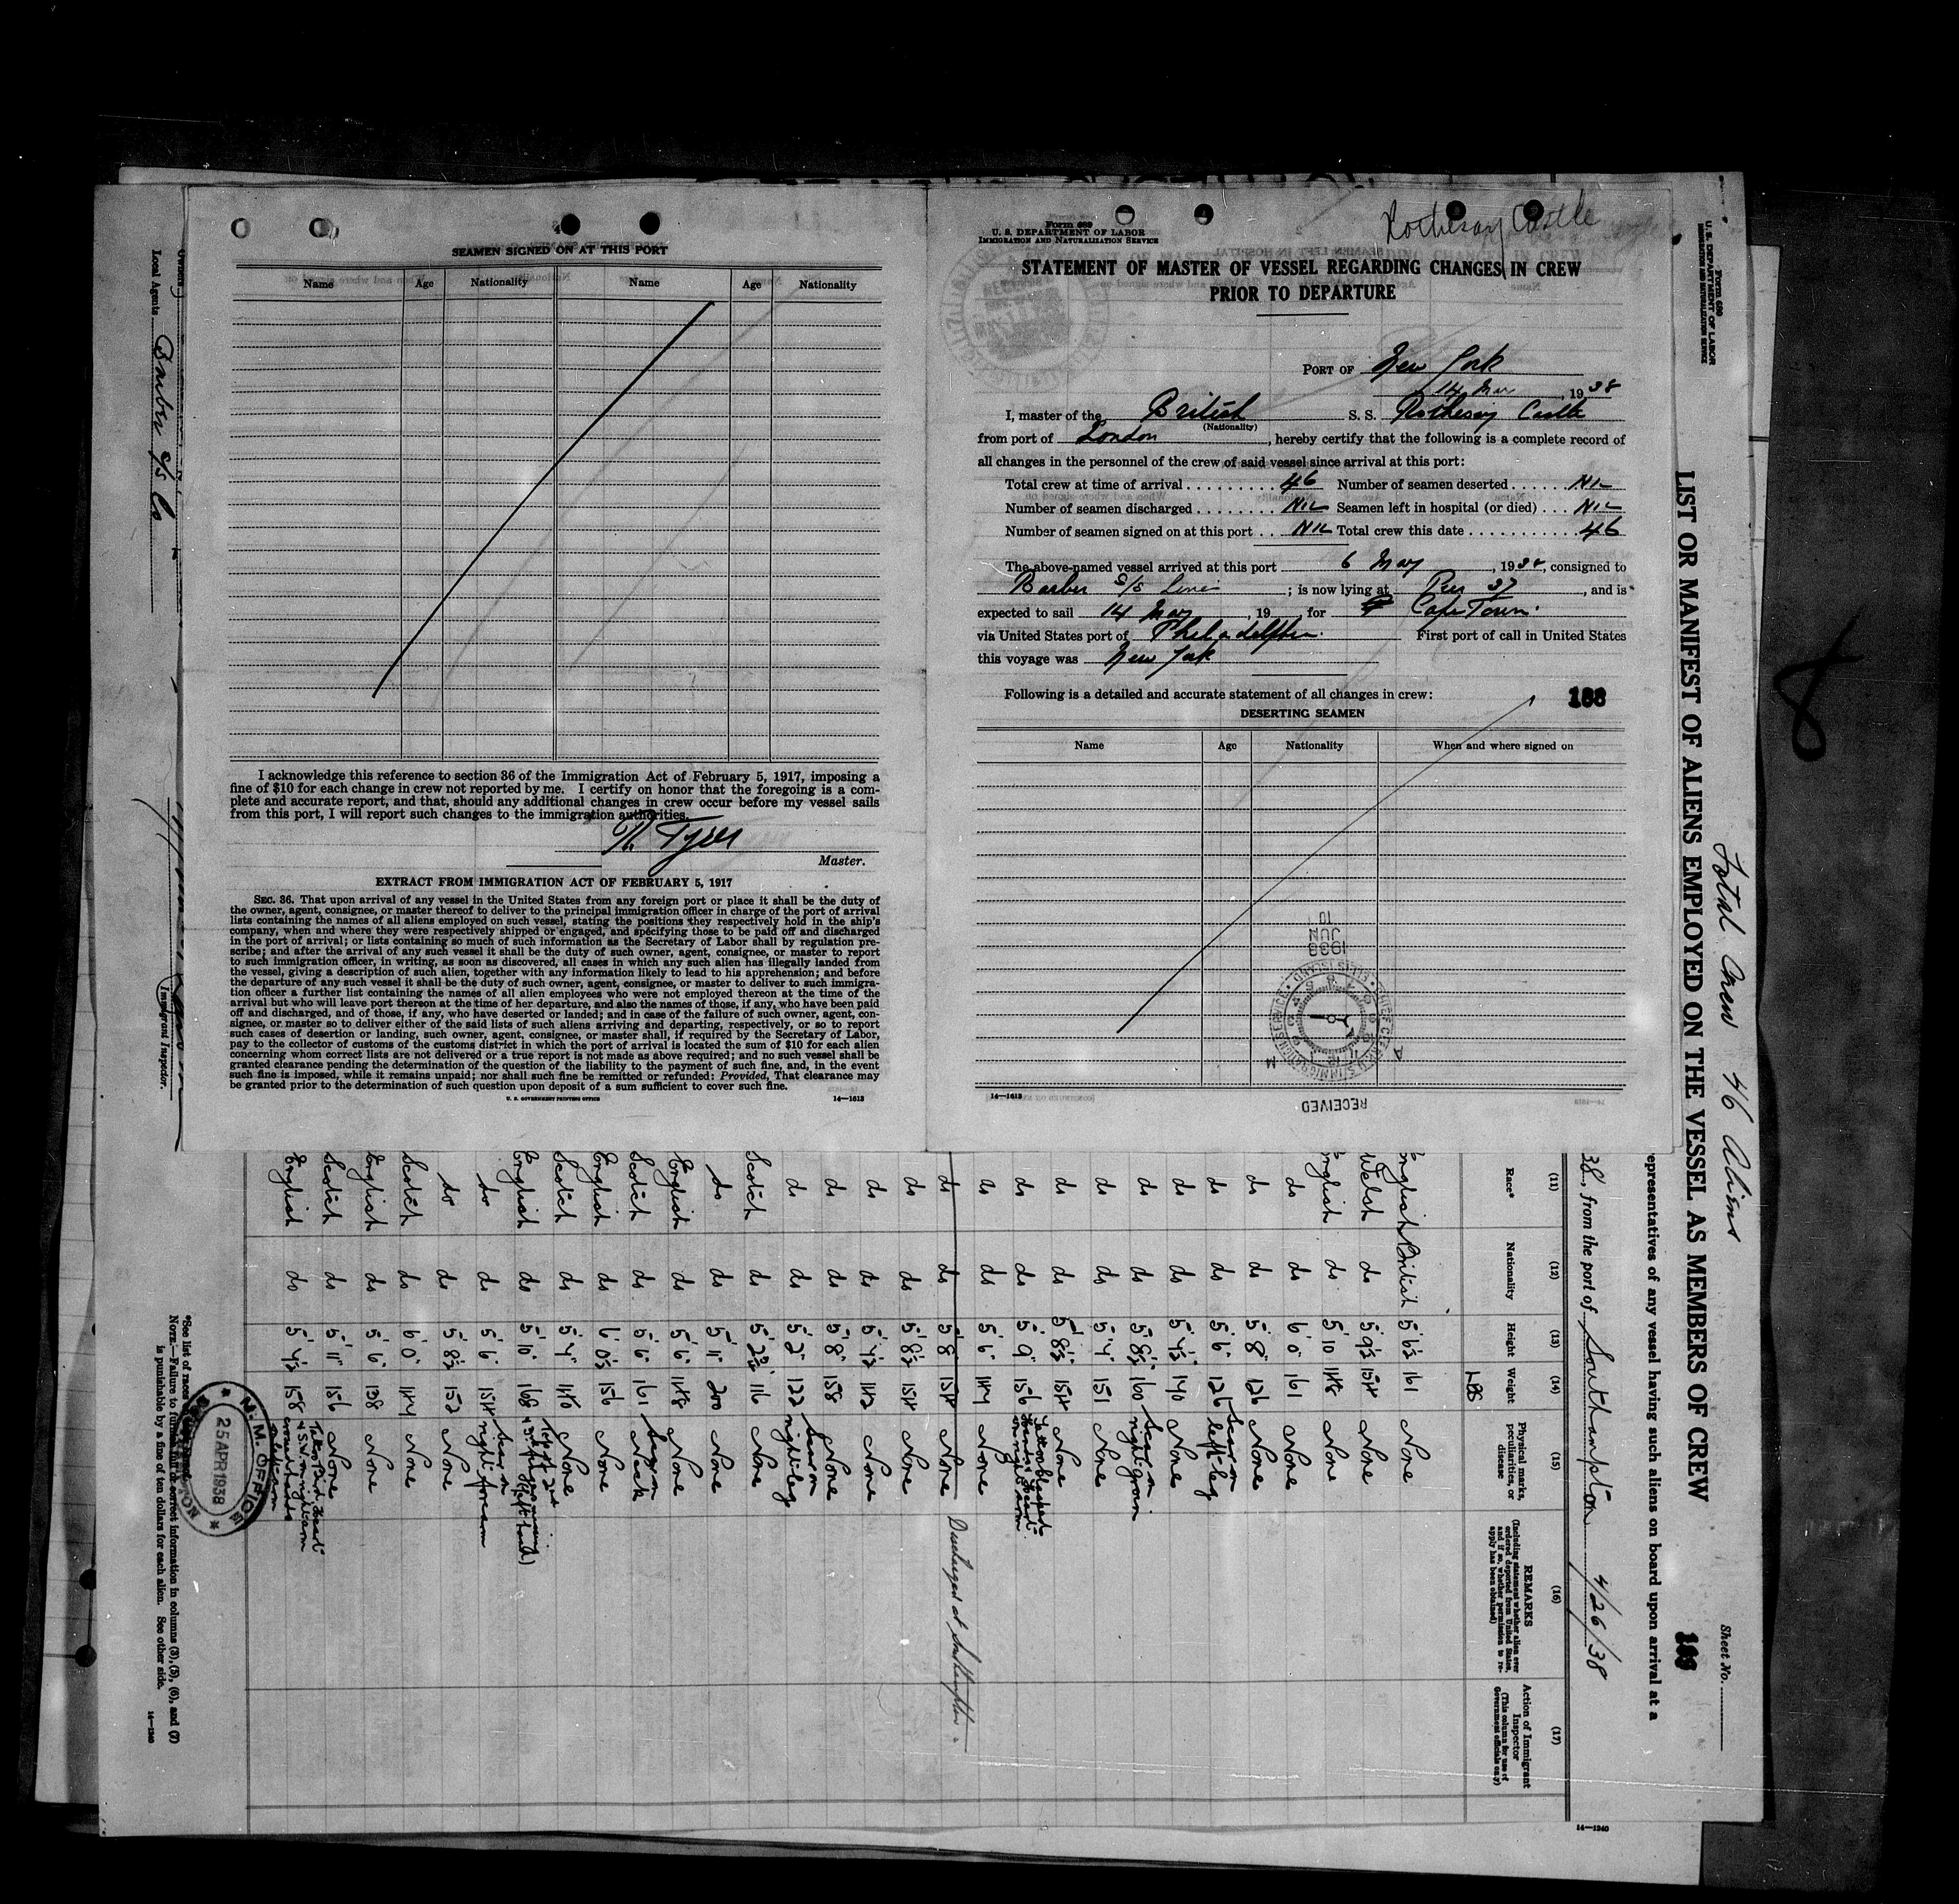 4
SEAMEN SIGNED ON AT THIS PORT
Name Age Nationality Name Age Nationality
I acknowledge this reference to section 36 of the Immigration Act of February 5, 1917, imposing a
fine of $10 for each change in crew not reported by me. I certify on honor that the foregoing is a com-
plete and accurate report, and that, should any additional changes in crew occur before my vessel sails
from this port, I will report such changes to the immigration authorities.
Master.
EXTRACT FROM IMMIGRATION ACT OF FEBRUARY 5, 1917
SEC. 36. That upon arrival of any vessel in the United States from any foreign port or place it shall be the duty of
the owner, agent, consignee, or master thereof to deliver to the principal immigration officer in charge of the port of arrival
lists containing the names of all aliens employed on such vessel, stating the positions they respectively hold in the ship's
company, when and where they were respectively shipped or engaged, and specifying those to be paid off and discharged
in the port of arrival; or lists containing so much of such information as the Secretary of Labor shall by regulation pre-
scribe; and after the arrival of any such vessel it shall be the duty of such owner, agent, consignee, or master to report
to such immigration officer, in writing, as soon as discovered, all cases in which any such alien has illegally landed from
the vessel, giving a description of such alien, together with any information likely to lead to his apprehension; and before
the departure of any such vessel it shall be the duty of such owner, agent, consignee, or master to deliver to such immigra-
tion officer a further list containing the names of all alien employees who were not employed thereon at the time of the
arrival but who will leave port thereon at the time of her departure, and also the names of those, if any, who have been paid
off and discharged, and of those, if any, who have deserted or landed; and in case of the failure of such owner, agent, con-
signee, or master so to deliver either of the said lists of such aliens arriving and departing, respectively, or so to report
such cases of desertion or landing, such owner, agent, consignee, or master shall, if required by the Secretary of Labor,
pay to the collector of customs of the customs district in which the port of arrival is located the sum of $10 for each alien
concerning whom correct lists are not delivered or a true report is not made as above required; and no such vessel shall be
granted clearance pending the determination of the question of the liability to the payment of such fine, and, in the event
such fine is imposed, while it remains unpaid; nor shall such fine be remitted or refunded: Provided, That clearance may
be granted prior to the determination of such question upon deposit of a sum sufficient to cover such fine.
U. S. GOVERNMENT PRINTING OFFICE 14—1613
Rothesay Castle
Form 689
U. S. DEPARTMENT OF LABOR
IMMIGRATION AND NATURALIZATION SERVICE
STATEMENT OF MASTER OF VESSEL REGARDING CHANGES IN CREW
PRIOR TO DEPARTURE
PORT OF New York
14 May, 1938
I, master of the British S. S. Rothesay Castle
(Nationality)
from port of London, hereby certify that the following is a complete record of
all changes in the personnel of the crew of said vessel since arrival at this port:
Total crew at time of arrival 46 Number of seamen deserted NIL
Number of seamen discharged NIL Seamen left in hospital (or died) NIL
Number of seamen signed on at this port NIL Total crew this date 46
The above-named vessel arrived at this port 6 May, 1938, consigned to
Barber S/S Line; is now lying at Pier 37, and is
expected to sail 14 May, 19 , for Cape Town.
via United States port of Philadelphia. First port of call in United States
this voyage was New York
Following is a detailed and accurate statement of all changes in crew: 188
DESERTING SEAMEN
Name Age Nationality When and where signed on
1938
JUN
10
ELLIS ISLAND
RECEIVED
14—1613
Form 689
U. S. DEPARTMENT OF LABOR
IMMIGRATION AND NATURALIZATION SERVICE
Sheet No.
Total Crew 46 Aliens
LIST OR MANIFEST OF ALIENS EMPLOYED ON THE VESSEL AS MEMBERS OF CREW
epresentatives of any vessel having such aliens on board upon arrival at a
38, from the port of Southampton 4/26/38
(11) (12) (13) (14) (15) (16) (17)
Race* Nationality Height Weight Physical marks, peculiarities, or disease REMARKS Action of Immigrant Inspector
(Including statement whether alien ever ordered deported from United States, and if so, whether permission to re-apply has been obtained)
(This column for use of Government officials only)
LBS
English British 5' 6½ 161 None
Welsh do 5' 9½ 154 None
English do 5' 10 148 None
do do 6' 0" 161 None
do do 5' 8" 126 None
do do 5' 6" 126 Scar on left leg
do do 5' 4½ 140 None
do do 5' 8½ 160 Scar on right groin
do do 5' 4" 151 None
do do 5' 8½ 154 None
do do 5' 9" 156
do do 5' 6" 147 None
do do 5' 8 154 None Discharged at Southampton
do do 5' 8½ 154 None
do do 5' 4½ 142 None
do do 5' 8" 158 None
do do 5' 2" 122 Scar on right leg
Scotch do 5' 2¾ 116 None
do do 5' 11" 200 None
English do 5' 6" 148 None
Scotch do 5' 6" 161 Scar on neck
English do 6' 0½ 156 None
Scotch do 5' 7" 140 None
English do 5' 10" 168
do do 5' 6" 154 Scar on right forearm
do do 5' 8½ 152 None
Scotch do 6' 0" 147 None
English do 5' 6" 138 None
Scotch do 5' 11" 156 None
English do 5' 4½ 158
14—1240
*See list of races
NOTE.—Failure to furnish full or correct information in columns (3), (5), (6), and (7)
is punishable by a fine of ten dollars for each alien. See other side.
14—1240
M.M. OFFICE
25 APR 1938
Owners
Local Agents Barber S/S Co
Immigrant Inspector.
8